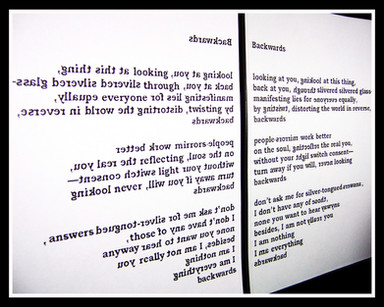 Backwards
looking at you, looking at this thing,
back at you, through silvered silvered glass-
manifesting lies for everyone equally,
by twisting, distorting the world in reverse,
backwards
people-mirrors work better
on the soul, reflecting the real you,
without your high switch consent—
turn away if you will, never looking
backwards
don't ask me for silver-tongued answers,
I don't have any of those,
none you want to hear anyway
besides, I am not really you
I am nothing
I am everything
backwards
Backwards
looking at you, looking at this thing,
back at you, through silvered silvered glass-
manifesting lies for everyone equally,
by twisting, distorting the world in reverse,
backwards
people-mirrors work better
on the soul, reflecting the real you,
without your high switch consent—
turn away if you will, never looking
backwards
don't ask me for silver-tongued answers,
I don't have any of those,
none you want to hear anyway
besides, I am not really you
I am nothing
I am everything
backwards